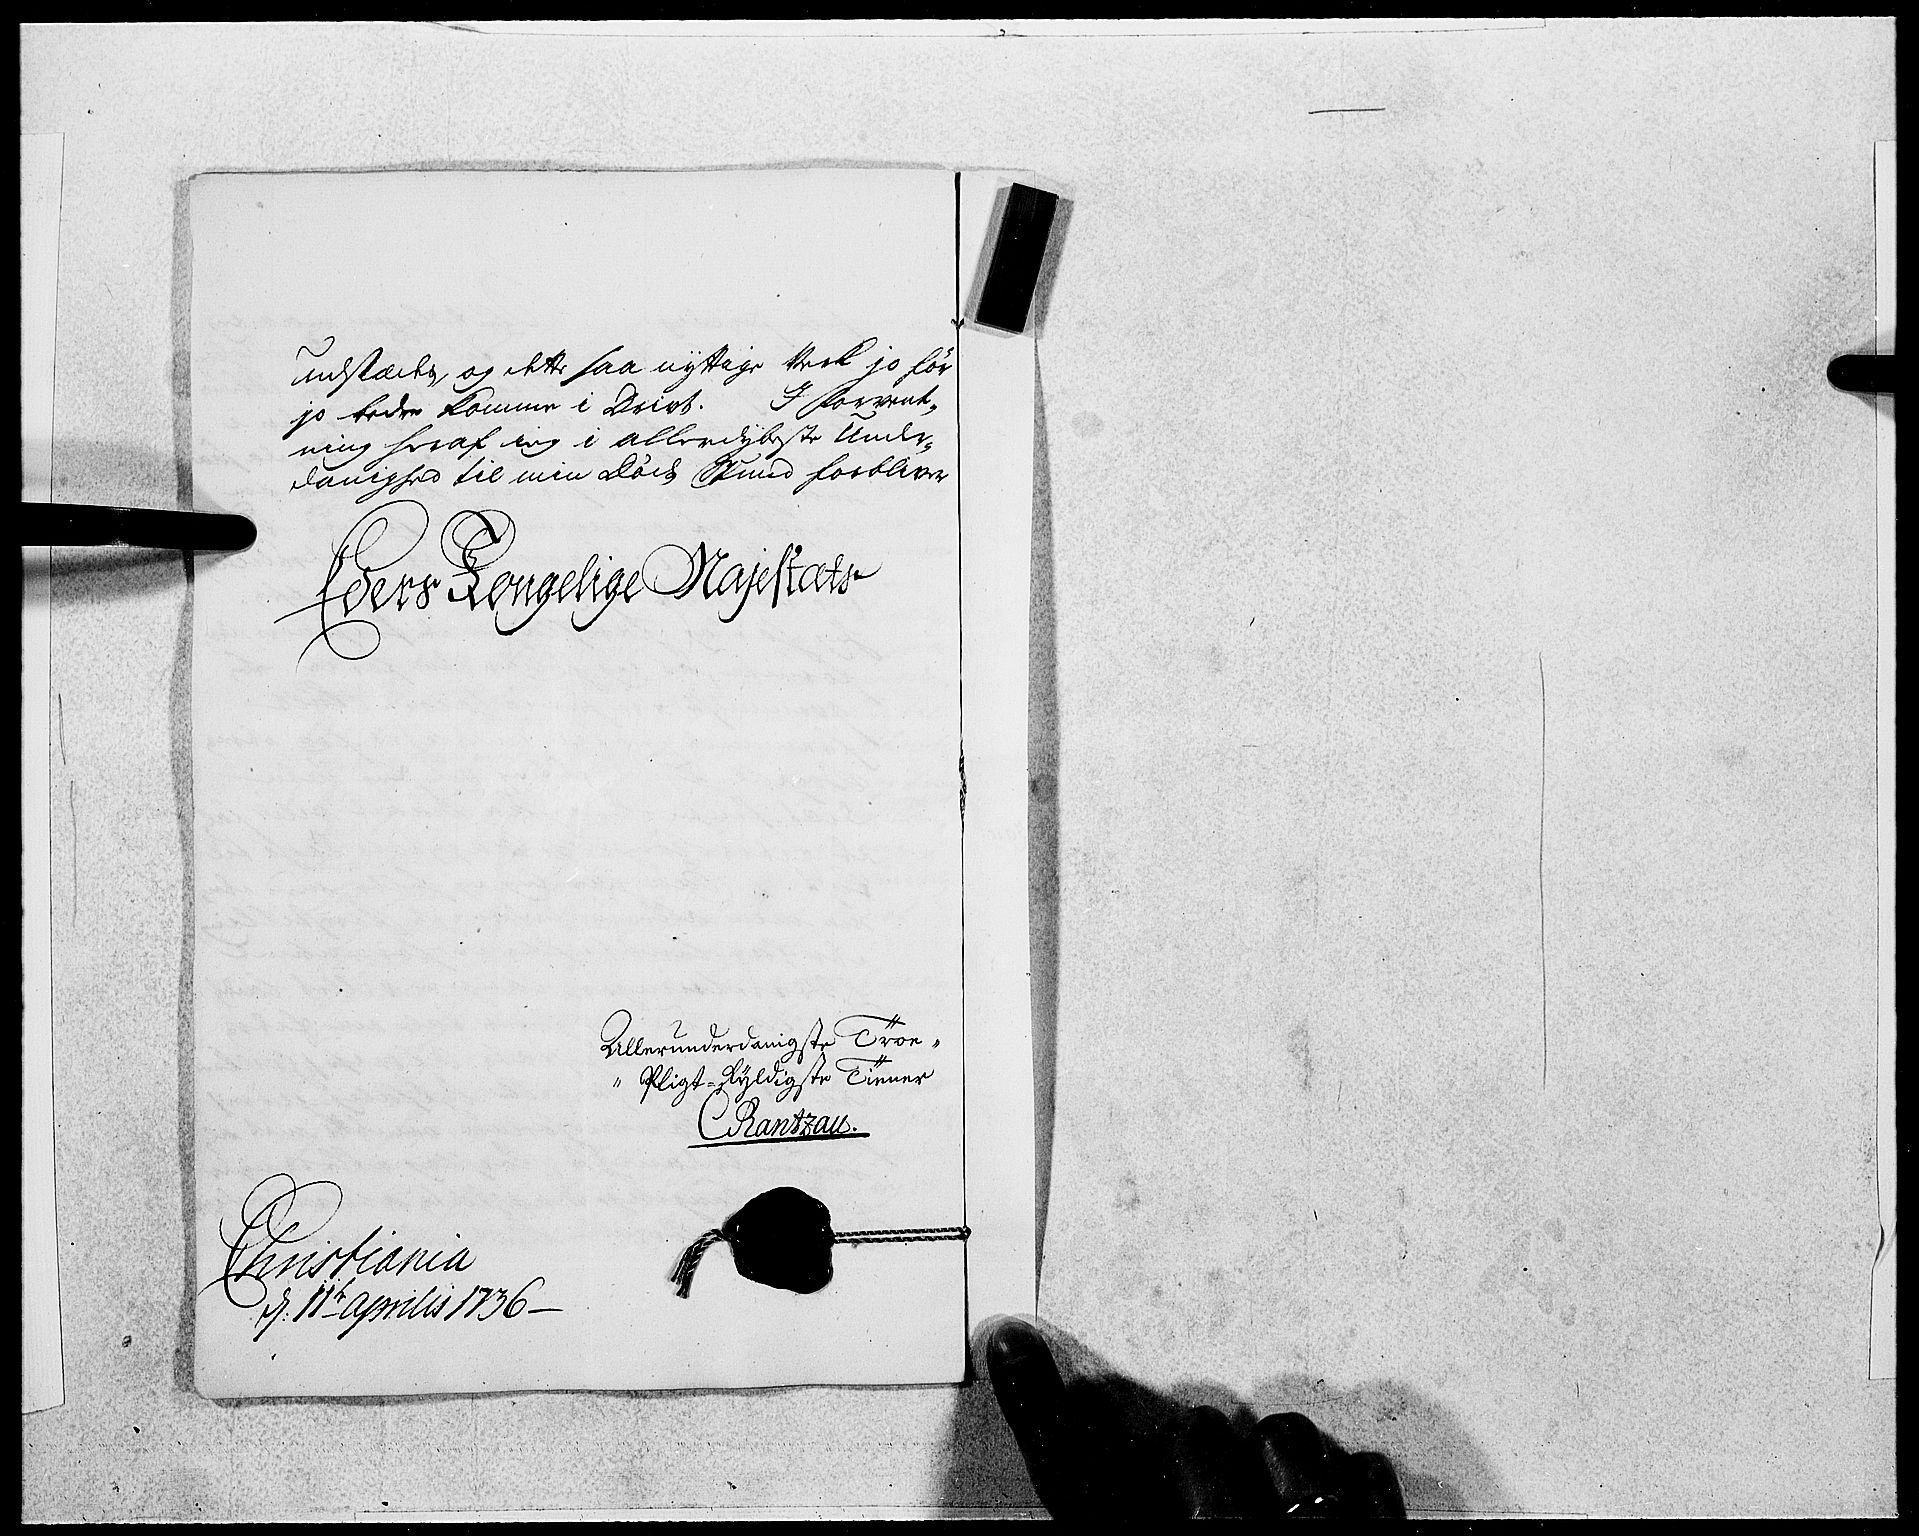 udstædes, og dette saa nyttige Verk jo för
jo bedre komme i Drivt. I forvent„
ning heraf ieg i allerdybeste Under„
danighed til min Döds Stund forbliver
Eders Kongelige Majestæts
Allerunderdanigste Troe„
„ Pligt-skyldigste Tienner
CRantzau.
Christiania
d: 11te Aprilis 1736